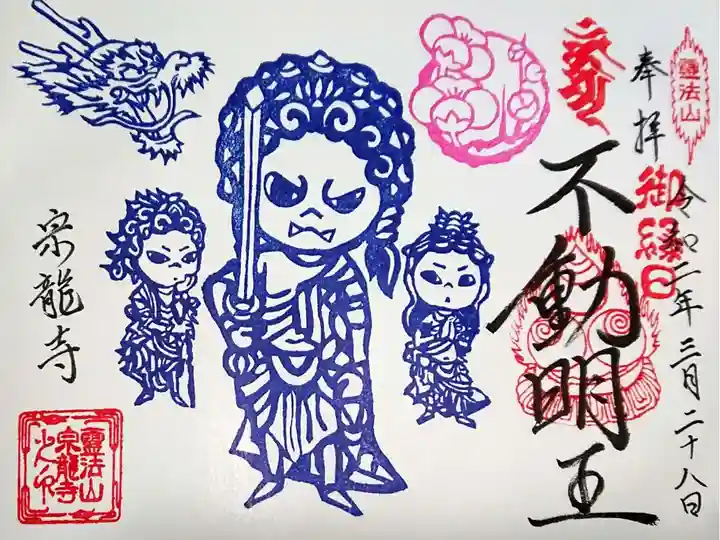 霊法山
奉拝
御縁日
令和二年三月二十八日
不動明王
宗龍寺
霊法山
宗龍寺
之印